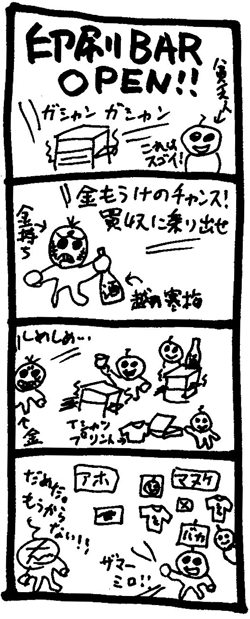 印刷BAR
OPEN!!
ガシャン ガシャン
貧乏人
これは
スゴイ!
金もうけのチャンス!
買収に乗り出せ
金持ち
酒
越の寒梅
しめしめ…
Tシャツ
プリント
金
だめだ。
もうから
ない!!
アホ
マヌケ
バカ
ザマー
ミロ!!